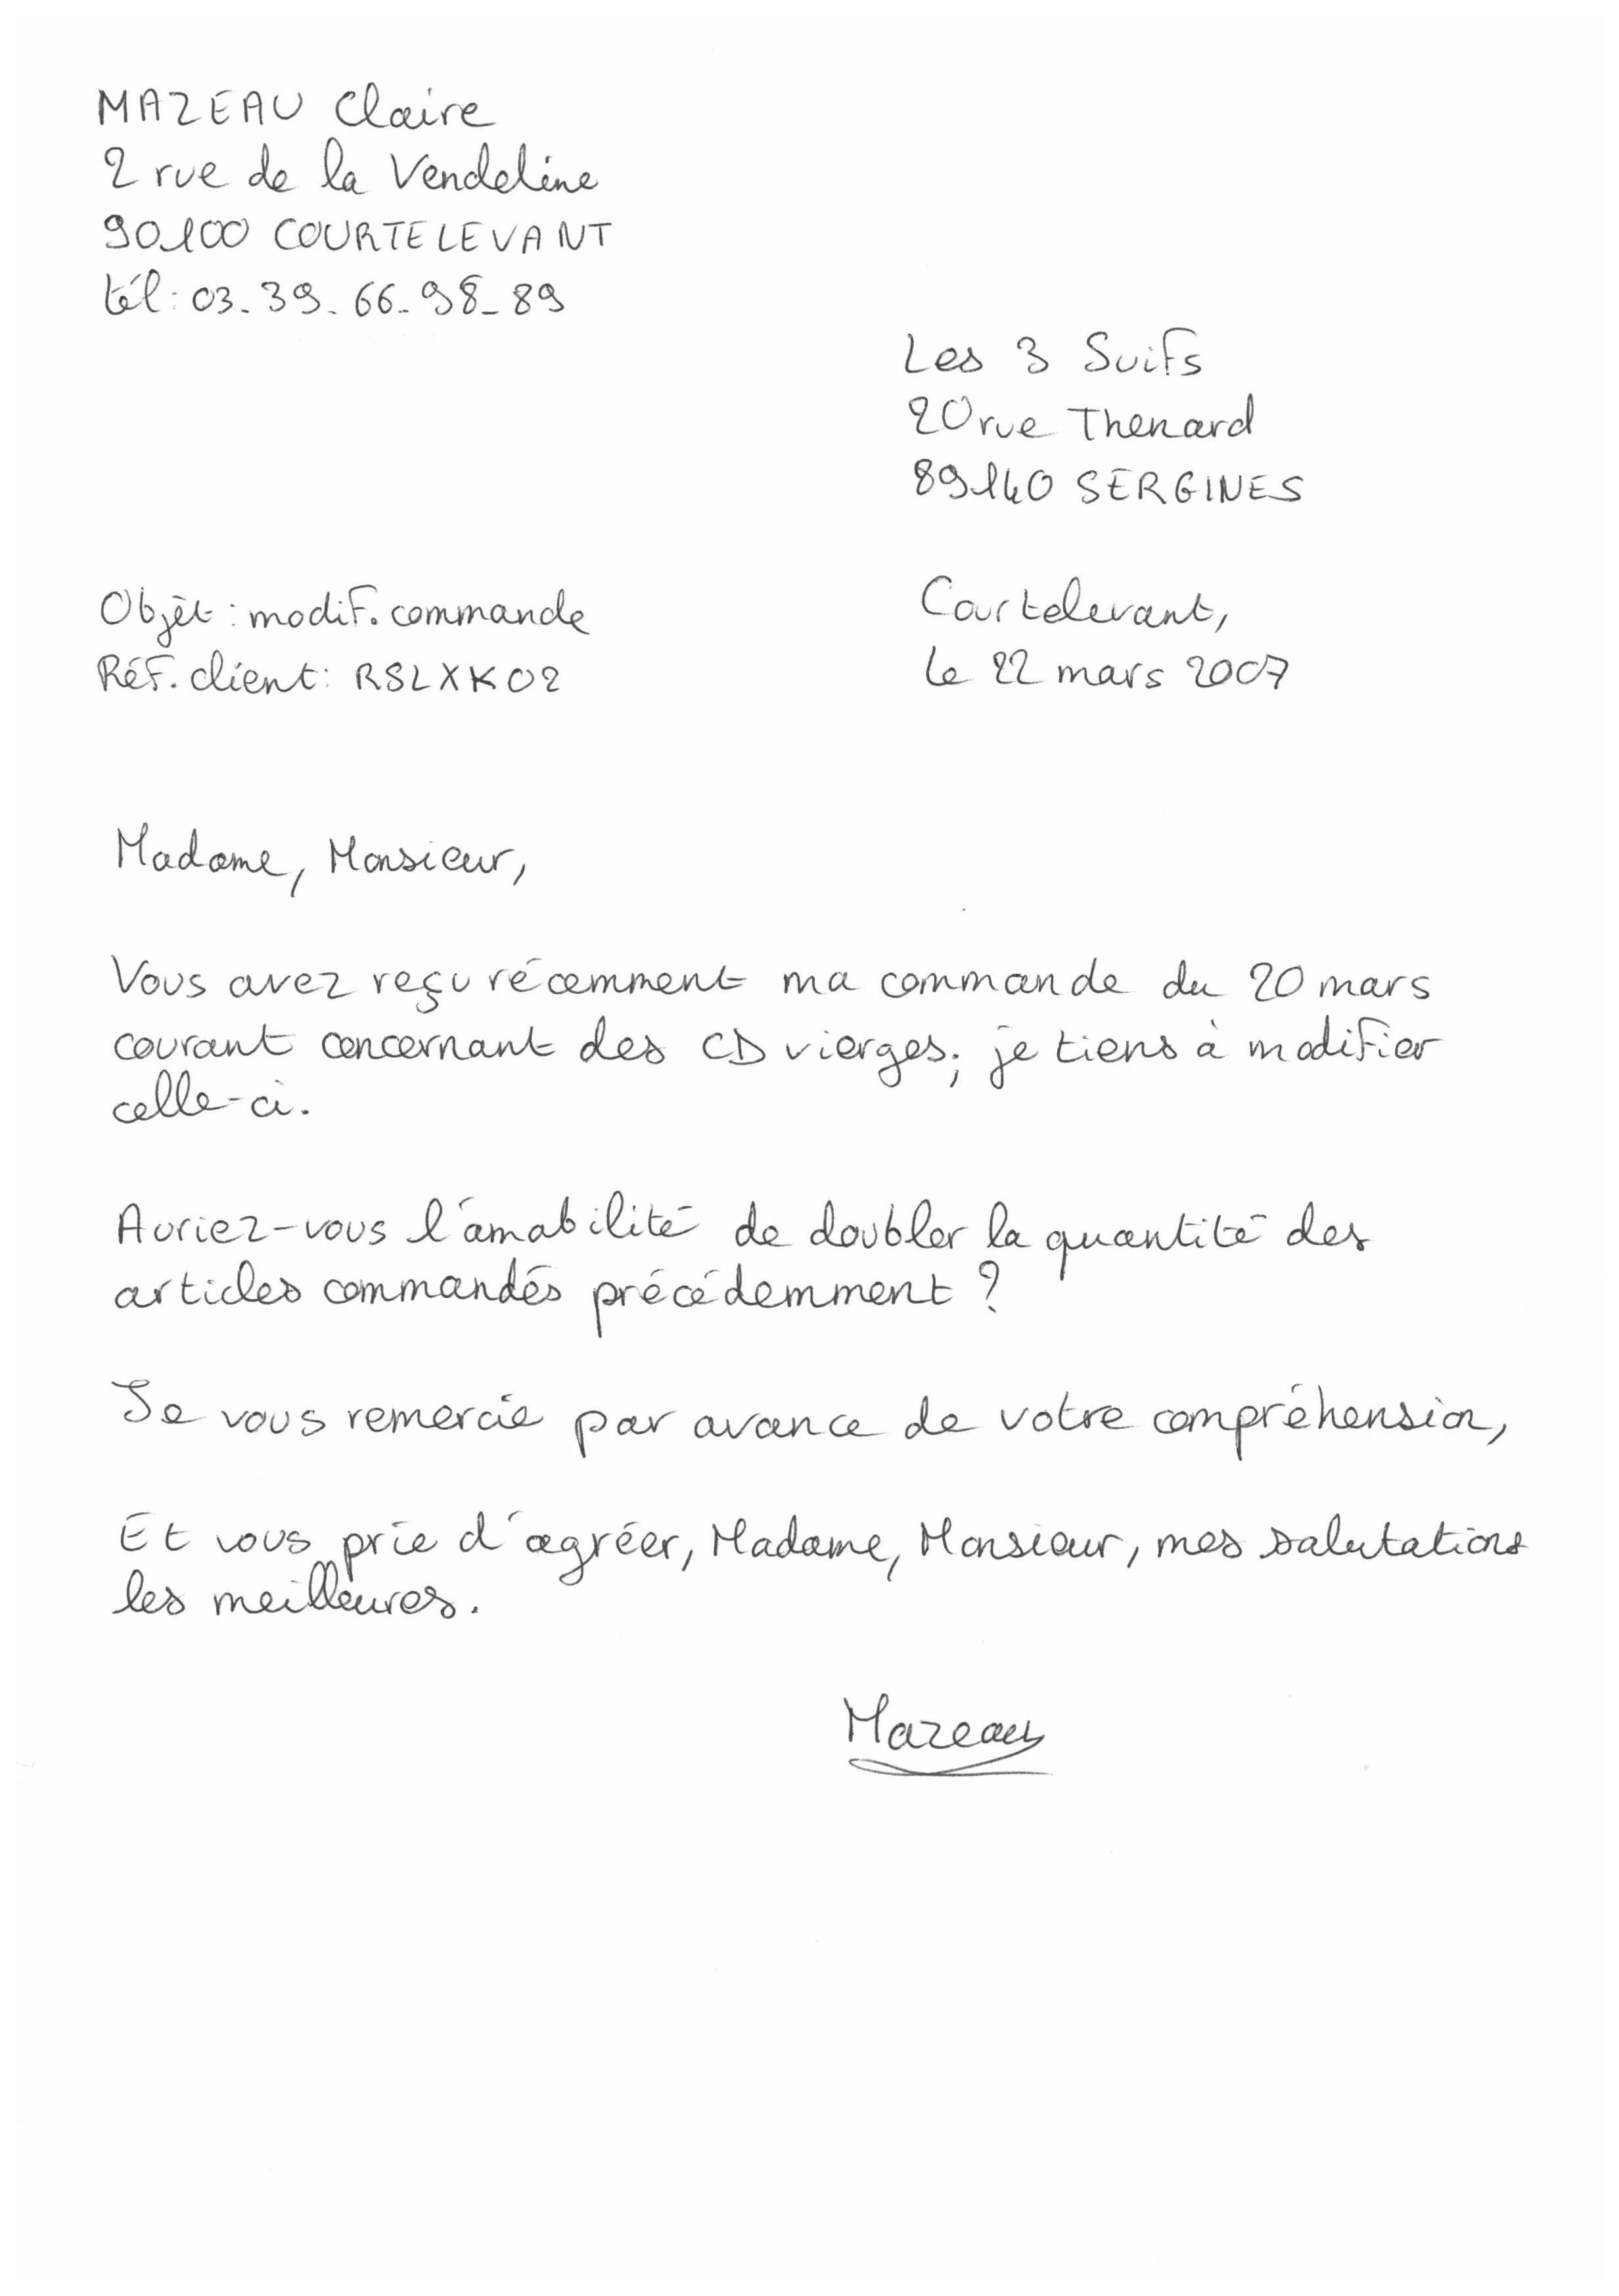 MAZEAU Claire
2 rue de la Vendeline
90100 COURTELEVANT
tél: 03.39.66.98_89
Les 3 Suifs
20 rue Thenard
89140 SERGINES
Objet : modif. commande
Réf. client: RSLXK02
Courtelevant,
le 22 mars 2007
Madame, Monsieur,
Vous avez reçu récemment ma commande du 20 mars
courant concernant des CD vierges; je tiens à modifier
celle-ci.
Auriez-vous l'amabilité de doubler la quantité des
articles commandés précédemment ?
Je vous remercie par avance de votre compréhension,
Et vous prie d'agréer, Madame, Monsieur, mes salutations
les meilleures.
Mazeau